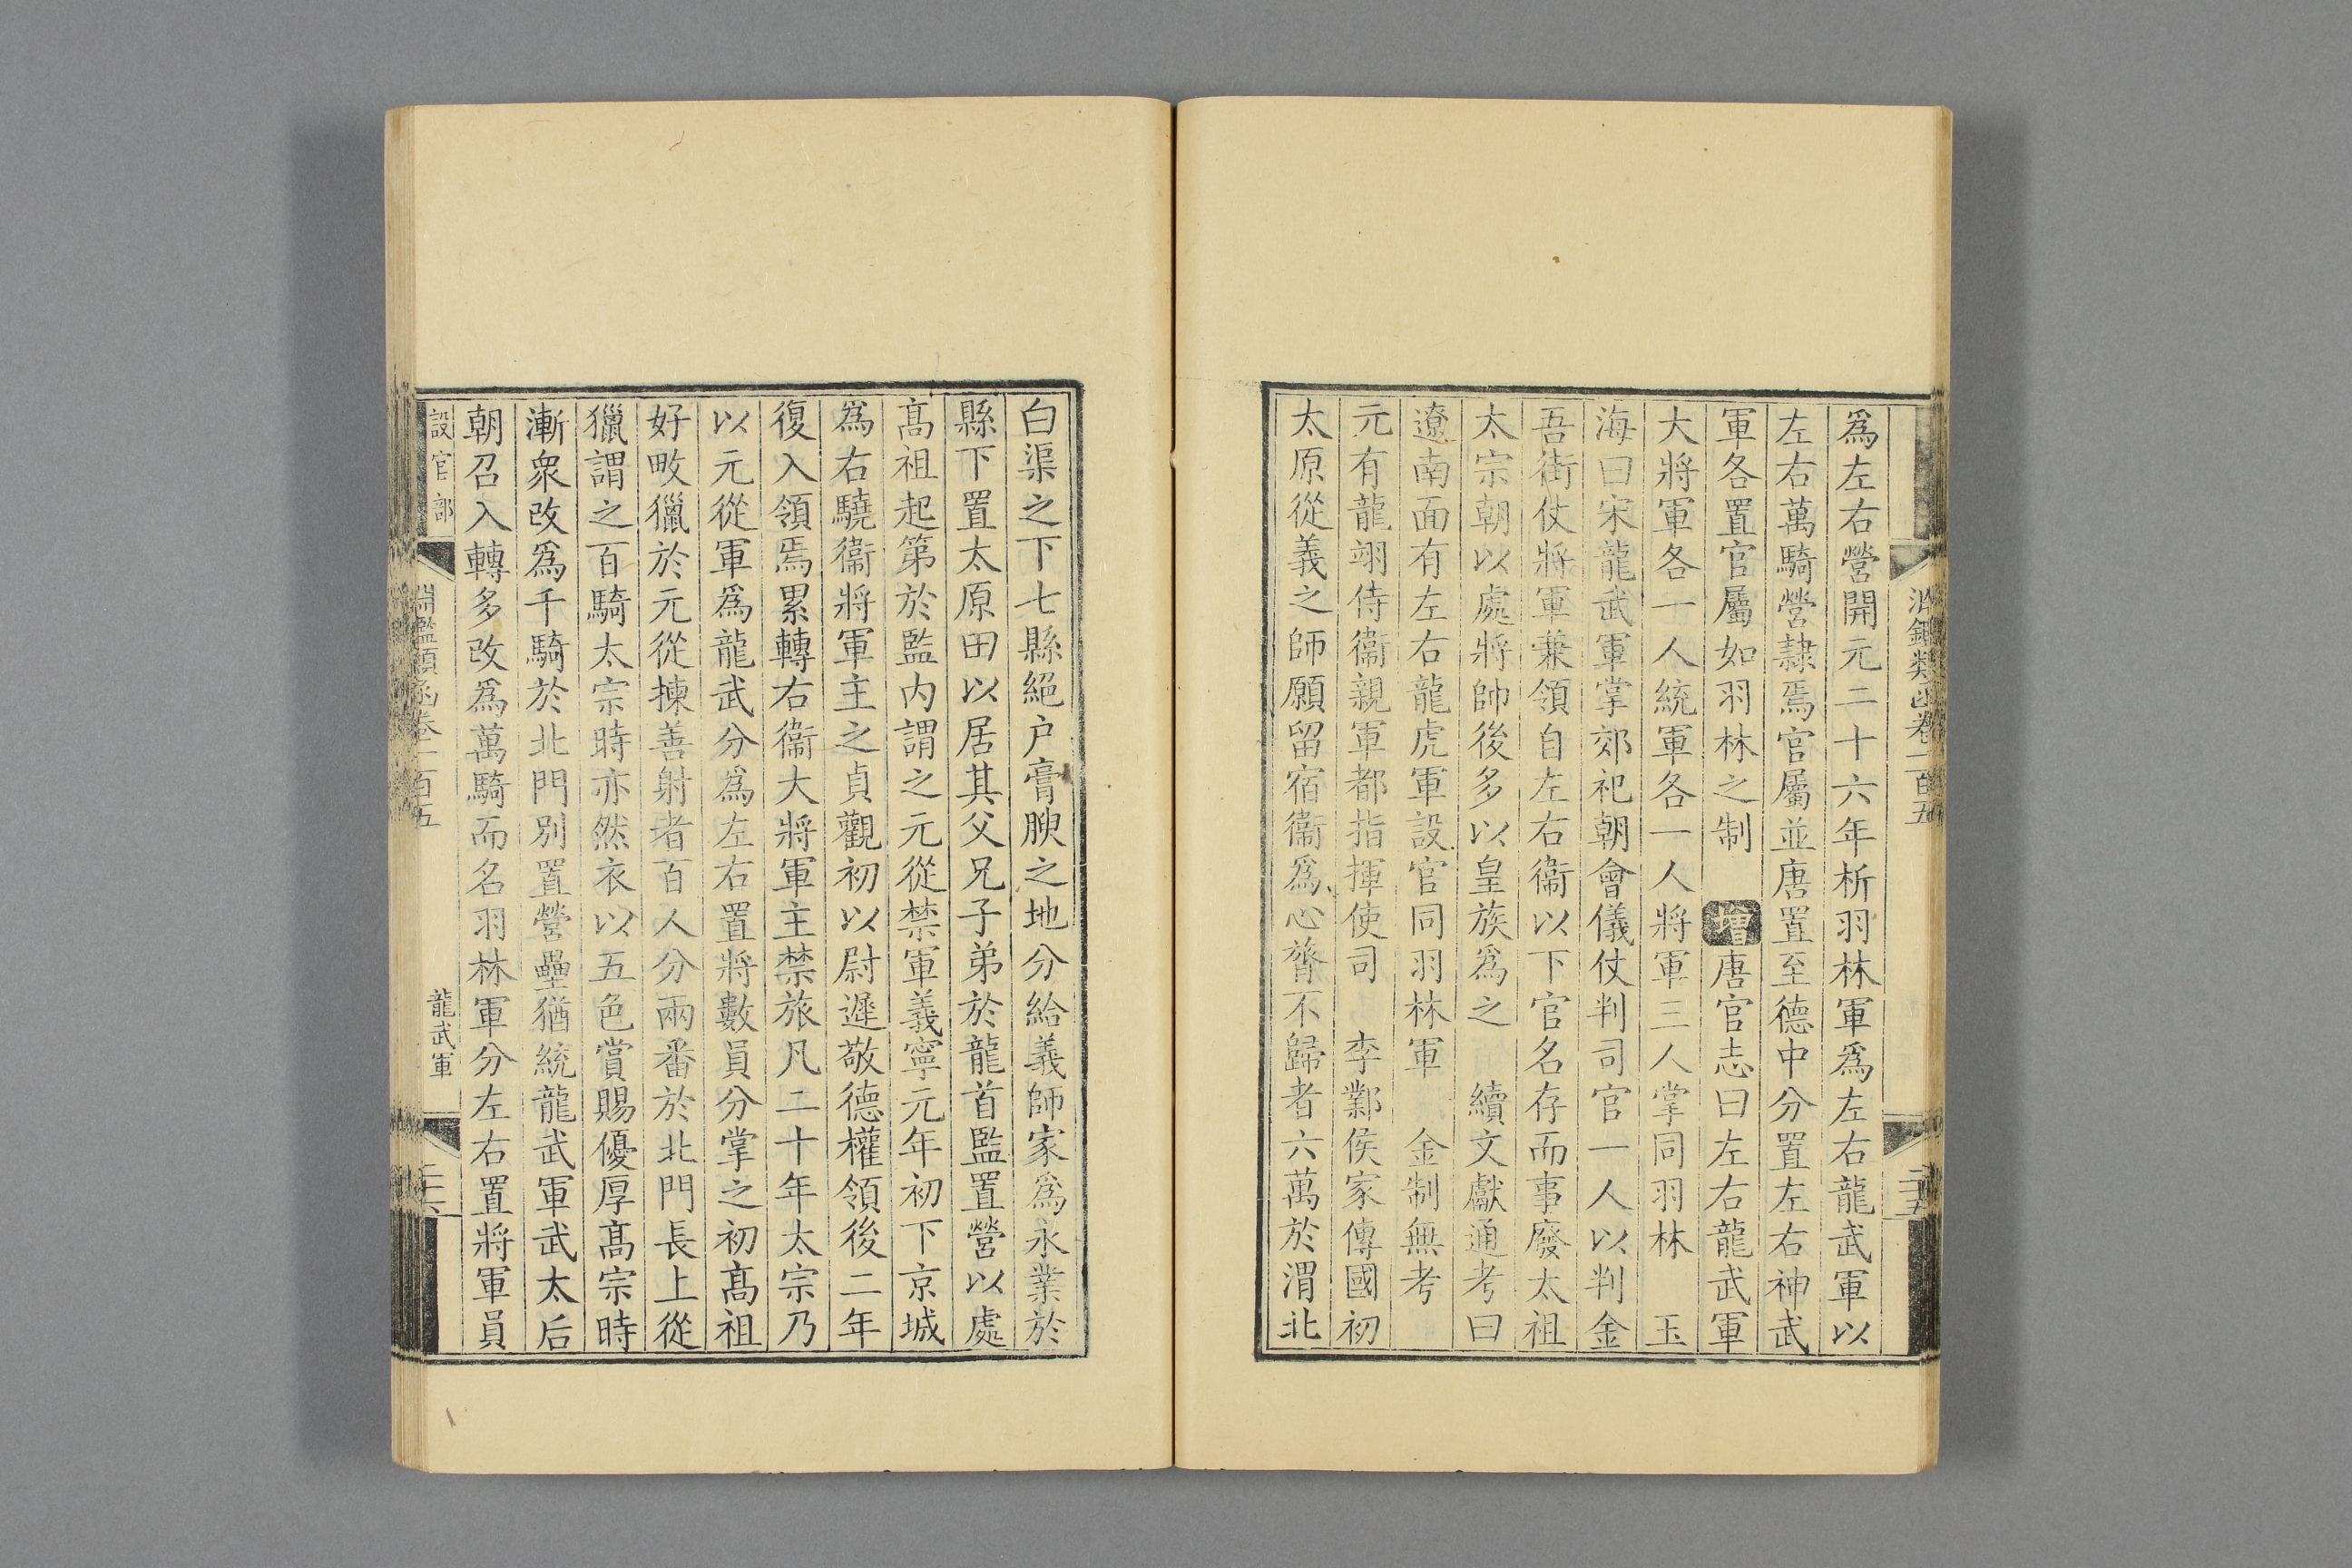 淵鑑類函卷一百五
二十五
爲左右營開元二十六年析羽林軍爲左右龍武軍以
左右萬騎營隷焉官屬並唐置至德中分置左右神武
軍各置官屬如羽林之制 增唐官志曰左右龍武軍
大將軍各一人統軍各一人將軍三人掌同羽林 玉
海曰宋龍武軍掌郊祀朝會儀仗判司官一人以判金
吾街仗將軍兼領自左右衞以下官名存而事廢太祖
太宗朝以處將帥後多以皇族爲之 續文獻通考曰
遼南面有左右龍虎軍設官同羽林軍 金制無考
元有龍翊侍衞親軍都指揮使司 李鄴侯家傳國初
太原從義之師願留宿衞爲心膂不歸者六萬於渭北
白渠之下七縣絕户膏腴之地分給義師家爲永業於
縣下置太原田以居其父兄子弟於龍首監置營以處
髙祖起第於監内謂之元從禁軍義寧元年初下京城
爲右驍衞將軍主之貞觀初以尉遲敬德權領後二年
復入領焉累轉右衞大將軍主禁旅凡二十年太宗乃
以元從軍爲龍武分爲左右置將數員分掌之初髙祖
好畋獵於元從揀善射者百人分兩番於北門長上從
獵謂之百騎太宗時亦然衣以五色賞賜優厚髙宗時
漸衆改爲千騎於北門別置營壘猶統龍武軍武太后
朝召入轉多改爲萬騎而名羽林軍分左右置將軍員
設官部
淵鑑類函卷一百五
龍武軍
二十六